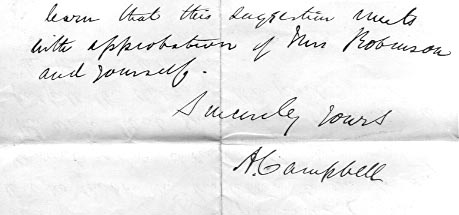 learn that this suggestion meets
with approbation of Mrs Robinson
and yourself.
Sincerely yours
A. Campbell